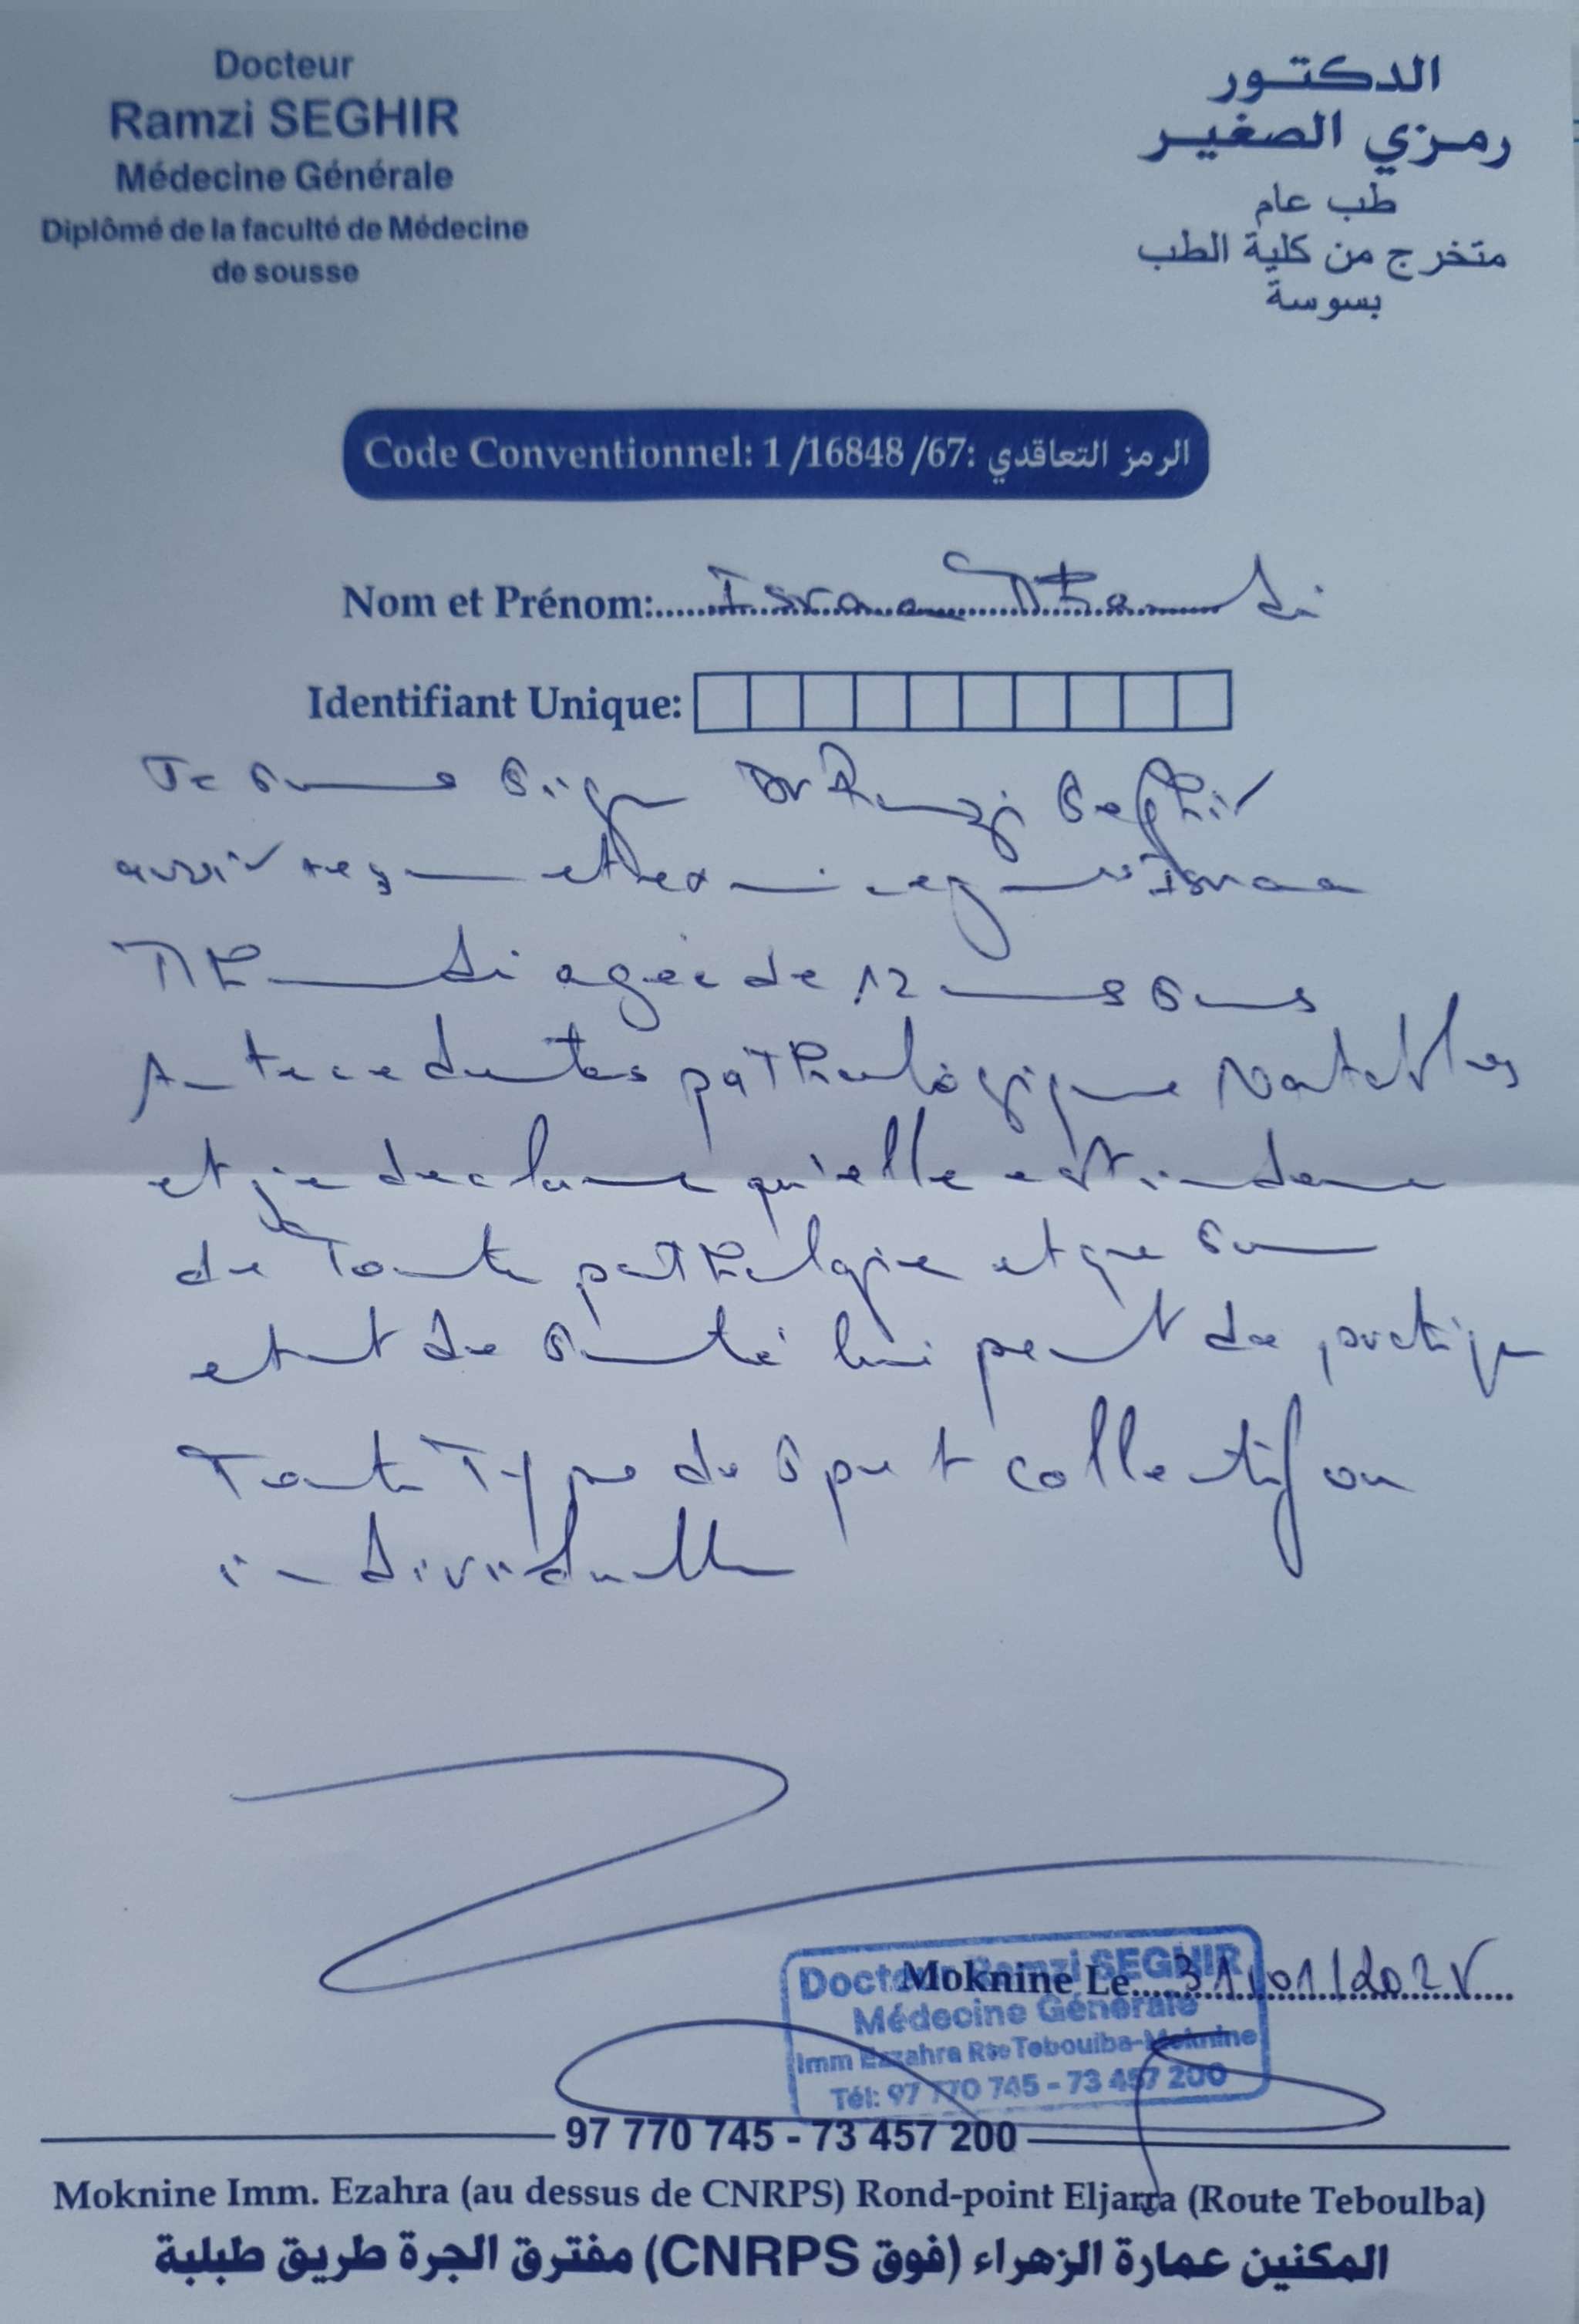 Docteur
Ramzi SEGHIR
Médecine Générale
Diplômé de la faculté de Médecine
de sousse
الدكتور
رمزي الصغير
طب عام
متخرج من كلية الطب
بسوسة
Code Conventionnel: 1 /16848 /67: الرمز التعاقدي
Nom et Prénom: Israa
Identifiant Unique:
Je Dr Ramzi Seghir
avoir et Israa
agée de 12 ans sans
Antecedentes pathologique Notables
et je declare qu'elle est indeme
de toute pathologie et que son
etat de santé lui de pratique
toute type de sport collectif ou
individuelle
Docteur Ramzi SEGHIR
Médecine Générale
Imm Ezzahra Rte Teboulba-Moknine
Tél: 97 770 745 - 73 457 200
Moknine Le 31/01/202
97 770 745 - 73 457 200
Moknine Imm. Ezahra (au dessus de CNRPS) Rond-point Eljarra (Route Teboulba)
المكنين عمارة الزهراء (فوق CNRPS) مفترق الجرة طريق طبلبة